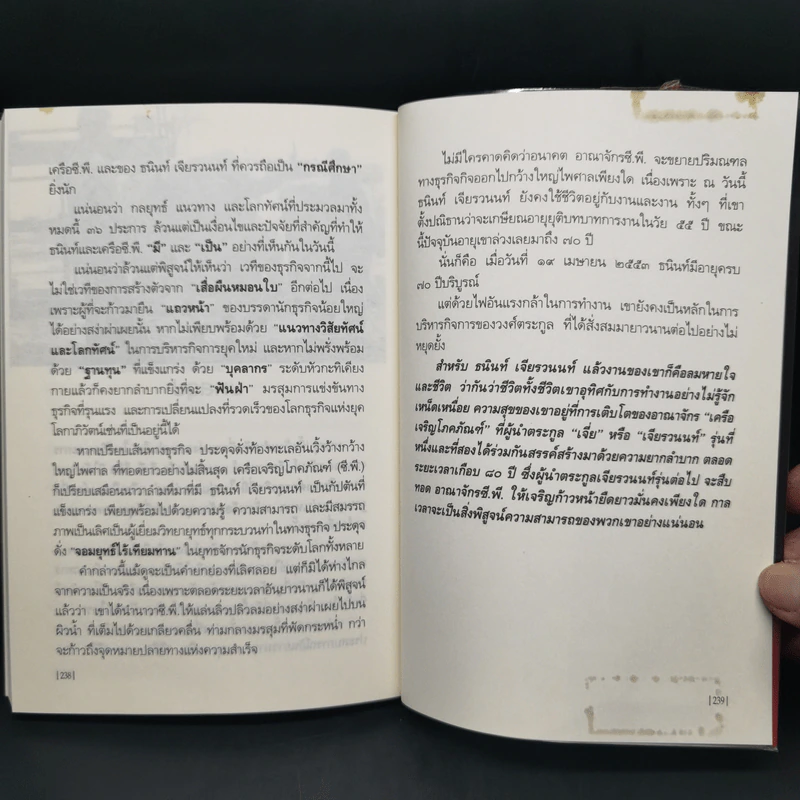 เครือซี.พี. และของ ธนินท์ เจียรวนนท์ ที่ควรถือเป็น "กรณีศึกษา"
ยิ่งนัก
แน่นอนว่า กลยุทธ์ แนวทาง และโลกทัศน์ที่ประมวลมาทั้ง
หมดนี้ ๓๖ ประการ ล้วนแต่เป็นเงื่อนไขและปัจจัยที่สำคัญที่ทำให้
ธนินท์และเครือซี.พี. "มี" และ "เป็น" อย่างที่เห็นกันในวันนี้
แน่นอนว่าล้วนแต่พิสูจน์ให้เห็นว่า เวทีของธุรกิจจากนี้ไป จะ
ไม่ใช่เวทีของการสร้างตัวจาก "เสื่อผืนหมอนใบ" อีกต่อไป เนื่อง
เพราะผู้ที่จะก้าวมายืน "แถวหน้า" ของบรรดานักธุรกิจน้อยใหญ่
ได้อย่างสง่าผ่าเผยนั้น หากไม่เพียบพร้อมด้วย "แนวทางวิสัยทัศน์
และโลกทัศน์" ในการบริหารกิจการยุคใหม่ และหากไม่พรั่งพร้อม
ด้วย "ฐานทุน" ที่แข็งแกร่ง ด้วย "บุคลากร" ระดับหัวกะทิเคียง
กายแล้วก็คงยากลำบากยิ่งที่จะ "ฟันฝ่า" มรสุมการแข่งขันทาง
ธุรกิจที่รุนแรง และการเปลี่ยนแปลงที่รวดเร็วของโลกธุรกิจแห่งยุค
โลกาภิวัตน์เช่นที่เป็นอยู่นี้ได้
หากเปรียบเส้นทางธุรกิจ ประดุจดั่งท้องทะเลอันเวิ้งว้างกว้าง
ใหญ่ไพศาล ที่ทอดยาวอย่างไม่สิ้นสุด เครือเจริญโภคภัณฑ์ (ซี.พี.)
ก็เปรียบเสมือนนาวาลำมหึมาที่มี ธนินท์ เจียรวนนท์ เป็นกัปตันที่
แข็งแกร่ง เพียบพร้อมไปด้วยความรู้ ความสามารถ และมีสมรรถ
ภาพเป็นเลิศเป็นผู้เยี่ยมวิทยายุทธ์ทุกกระบวนท่าในทางธุรกิจ ประดุจ
ดั่ง "จอมยุทธ์ไร้เทียมทาน" ในยุทธจักรนักธุรกิจระดับโลกทั้งหลาย
คำกล่าวนี้แม้ดูจะเป็นคำยกย่องที่เลิศลอย แต่ก็มิได้ห่างไกล
จากความเป็นจริง เนื่องเพราะตลอดระยะเวลาอันยาวนานก็ได้พิสูจน์
แล้วว่า เขาได้นำนาวาซี.พี.ให้แล่นลิ่วปลิวลมอย่างสง่าผ่าเผยไปบน
ผิวน้ำ ที่เต็มไปด้วยเกลียวคลื่น ท่ามกลางมรสุมที่พัดกระหน่ำ กว่า
จะก้าวถึงจุดหมายปลายทางแห่งความสำเร็จ
|238|
ไม่มีใครคาดคิดว่าอนาคต อาณาจักรซี.พี. จะขยายปริมณฑล
ทางธุรกิจกิจออกไปกว้างใหญ่ไพศาลเพียงใด เนื่องเพราะ ณ วันนี้
ธนินท์ เจียรวนนท์ ยังคงใช้ชีวิตอยู่กับงานและงาน ทั้งๆ ที่เขา
ตั้งปณิธานว่าจะเกษียณอายุยุติบทบาทการงานในวัย ๕๕ ปี ขณะ
นี้ปัจจุบันอายุเขาล่วงเลยมาถึง ๗๐ ปี
นั่นก็คือ เมื่อวันที่ ๑๙ เมษายน ๒๕๕๓ ธนินท์มีอายุครบ
๗๐ ปีบริบูรณ์
แต่ด้วยไฟอันแรงกล้าในการทำงาน เขายังคงเป็นหลักในการ
บริหารกิจการของวงศ์ตระกูล ที่ได้สั่งสมมายาวนานต่อไปอย่างไม่
หยุดยั้ง
สำหรับ ธนินท์ เจียรวนนท์ แล้วงานของเขาก็คือลมหายใจ
และชีวิต ว่ากันว่าชีวิตทั้งชีวิตเขาอุทิศกับการทำงานอย่างไม่รู้จัก
เหน็ดเหนื่อย ความสุขของเขาอยู่ที่การเติบโตของอาณาจักร "เครือ
เจริญโภคภัณฑ์" ที่ผู้นำตระกูล "เจี่ย" หรือ "เจียรวนนท์" รุ่นที่
หนึ่งและที่สองได้ร่วมกันสรรค์สร้างมาด้วยความยากลำบาก ตลอด
ระยะเวลาเกือบ ๘๐ ปี ซึ่งผู้นำตระกูลเจียรวนนท์รุ่นต่อไป จะสืบ
ทอด อาณาจักรซี.พี. ให้เจริญก้าวหน้ายืดยาวมั่นคงเพียงใด กาล
เวลาจะเป็นสิ่งพิสูจน์ความสามารถของพวกเขาอย่างแน่นอน
|239|